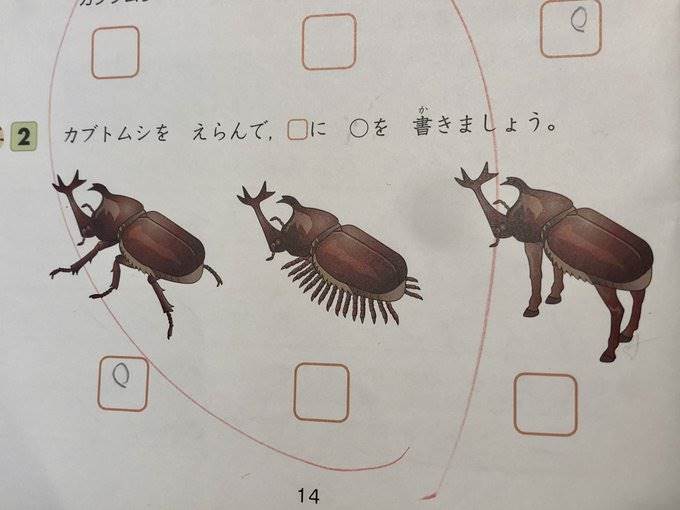 カブトムシ
2 カブトムシを えらんで, □に ○を 書きましょう。
か
14